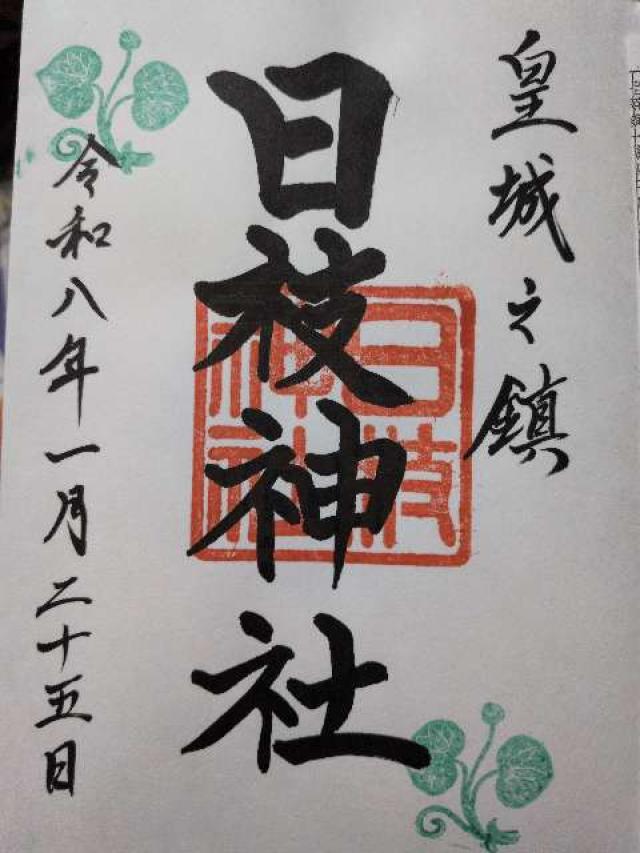 皇城之鎮
日枝神社
日枝
神社
令和八年一月二十五日